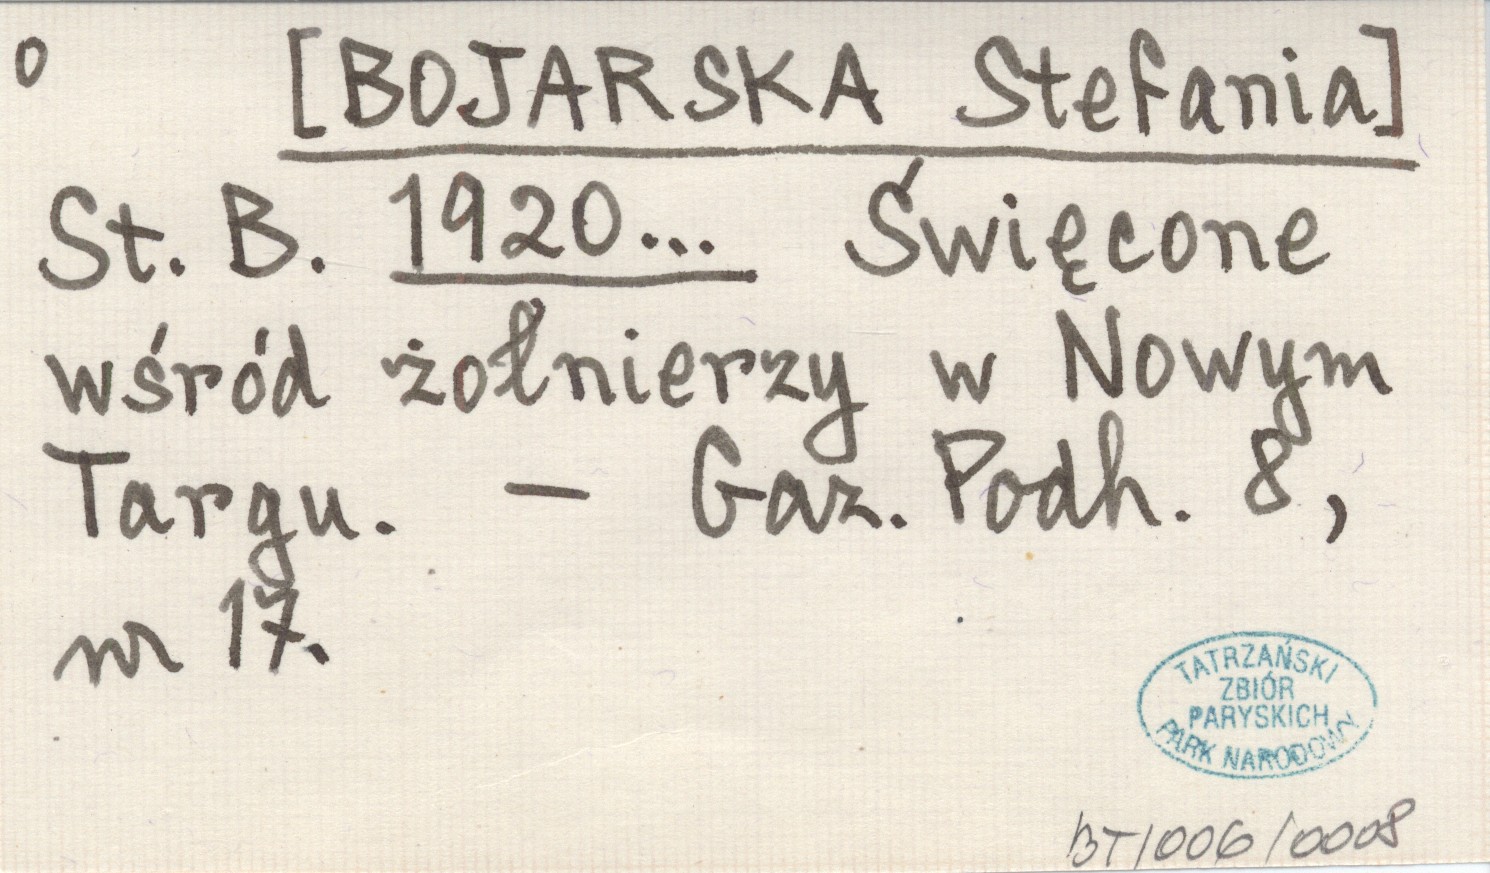 o
[BOJARSKA Stefania]
St. B. 1920... Święcone
wśród żołnierzy w Nowym
Targu. — Gaz. Podh. 8,
nr 17.
TATRZAŃSKI
ZBIÓR
PARYSKICH
PARK NARODOWY
BT/006/0008